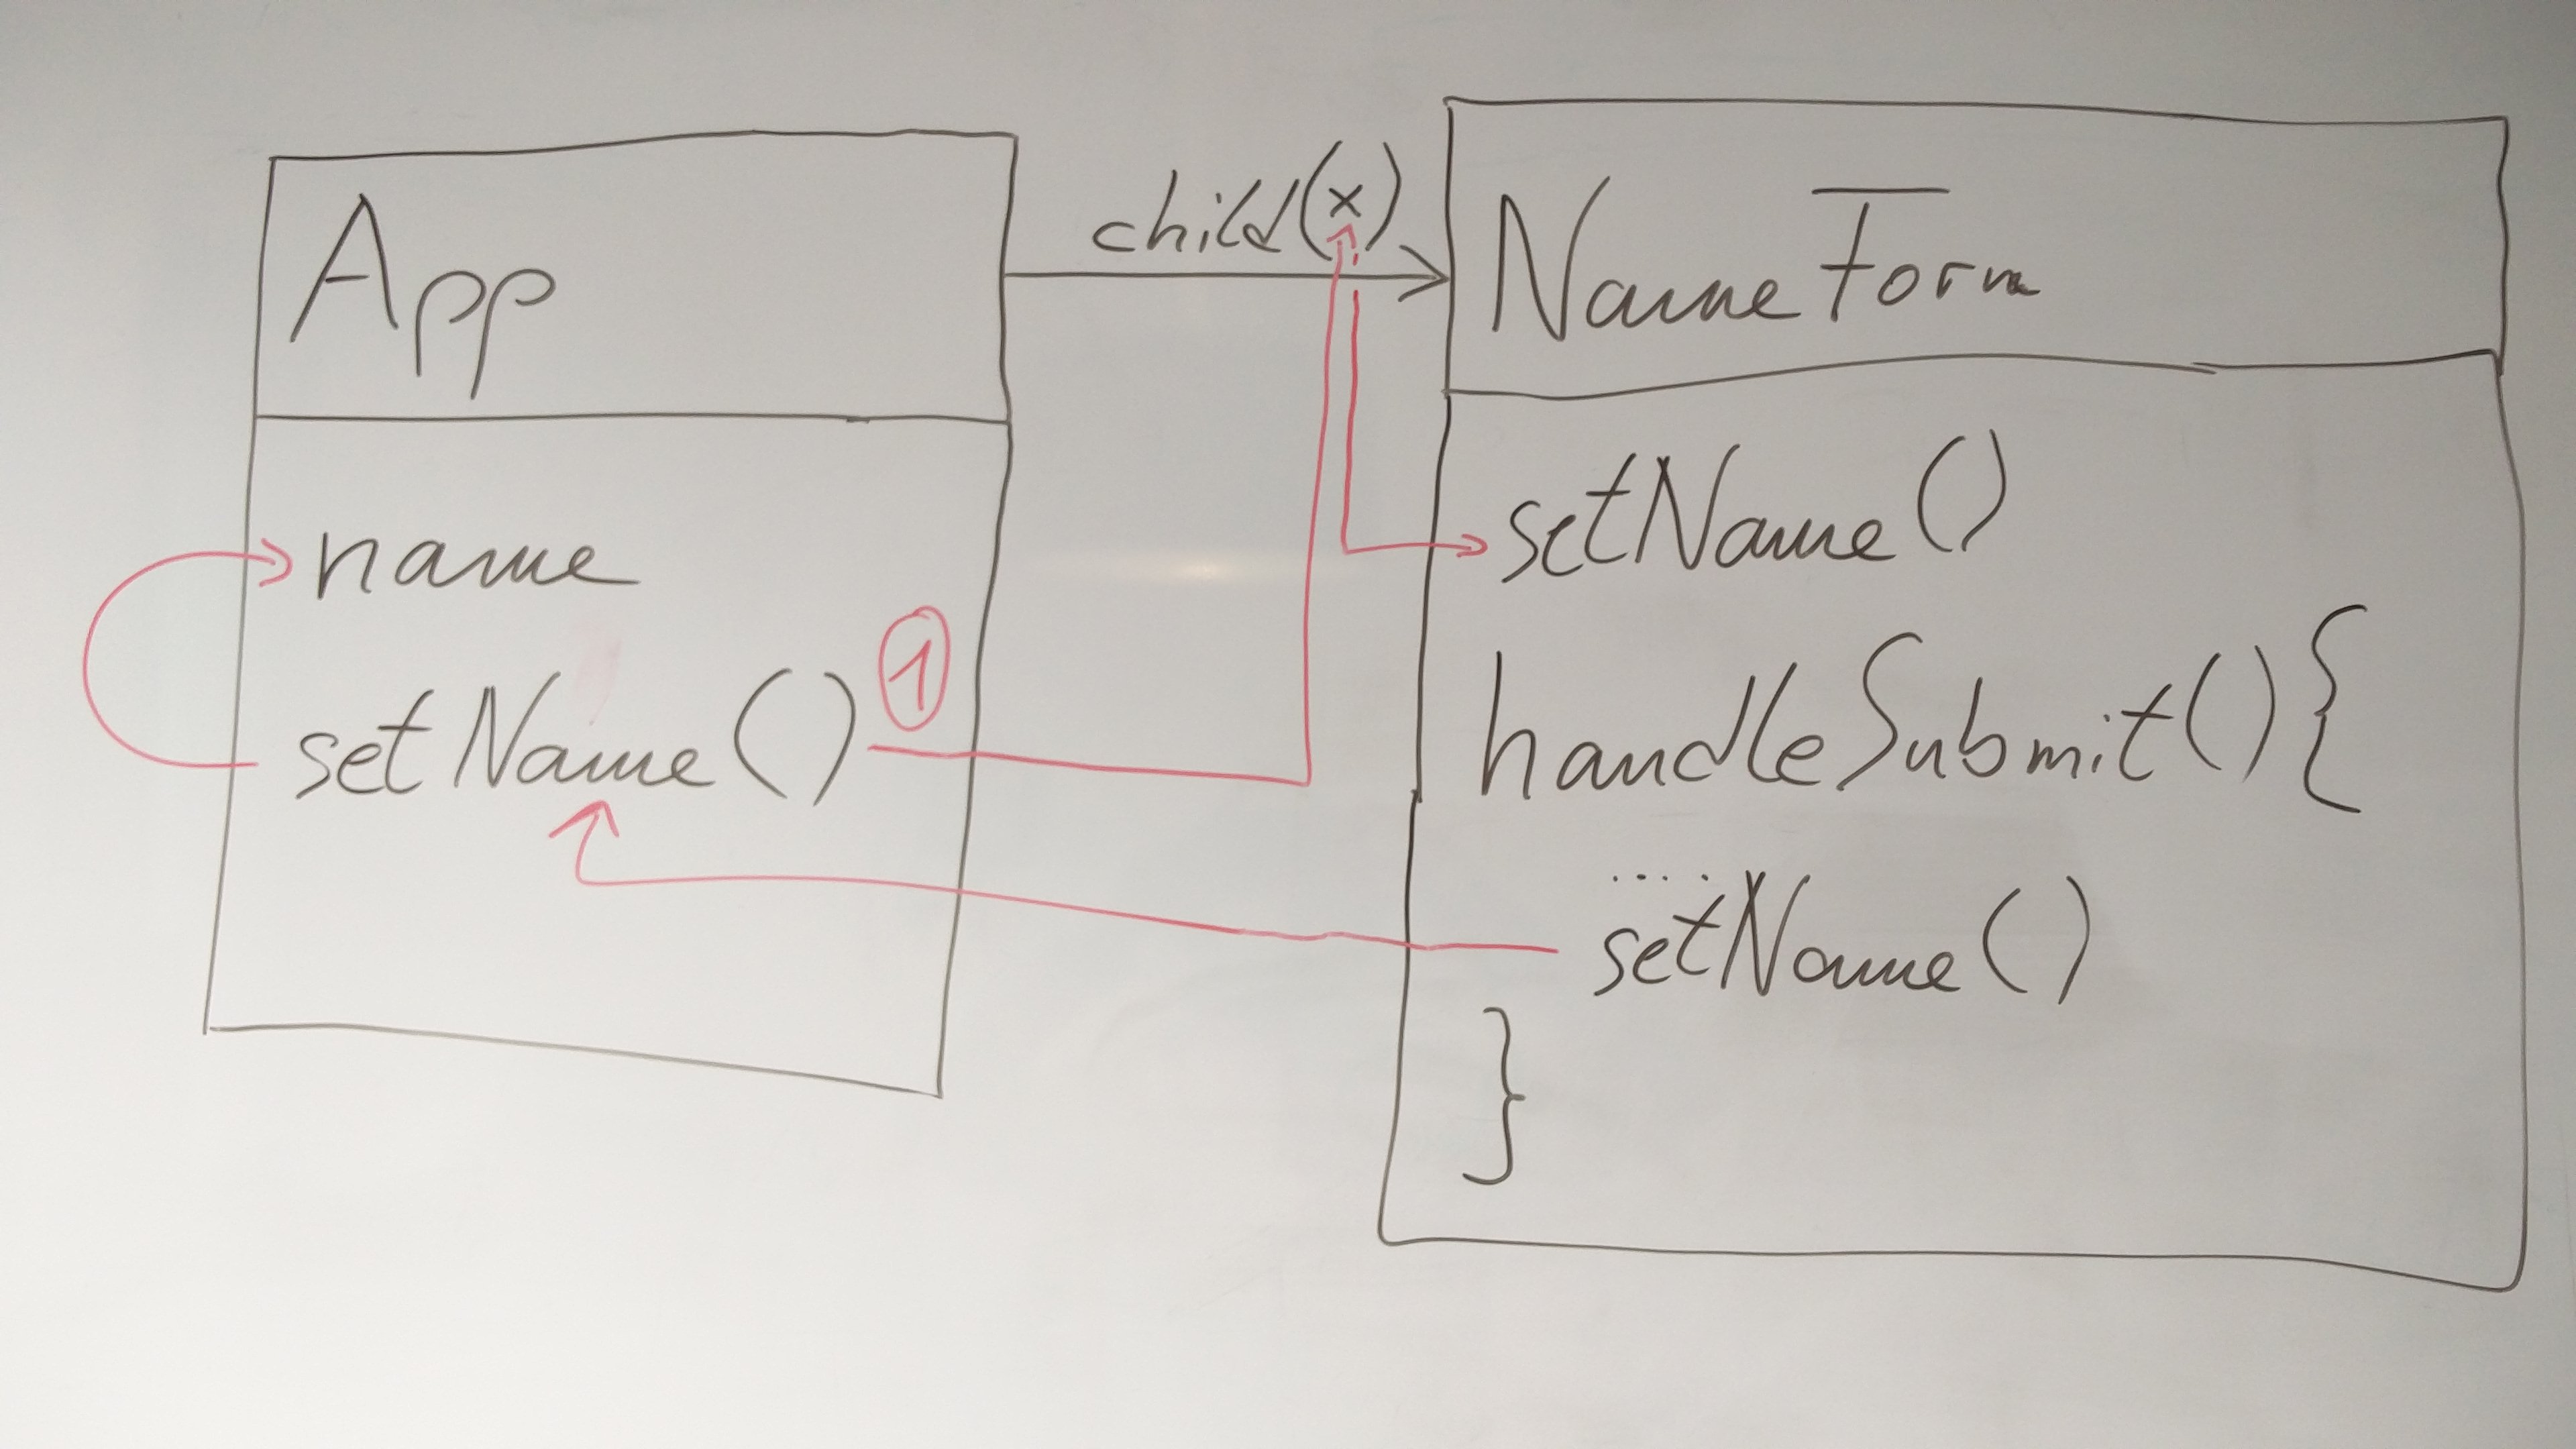 App
name
setName()
1
child(x)
NameForm
setName()
handleSubmit(){
....
setName()
}